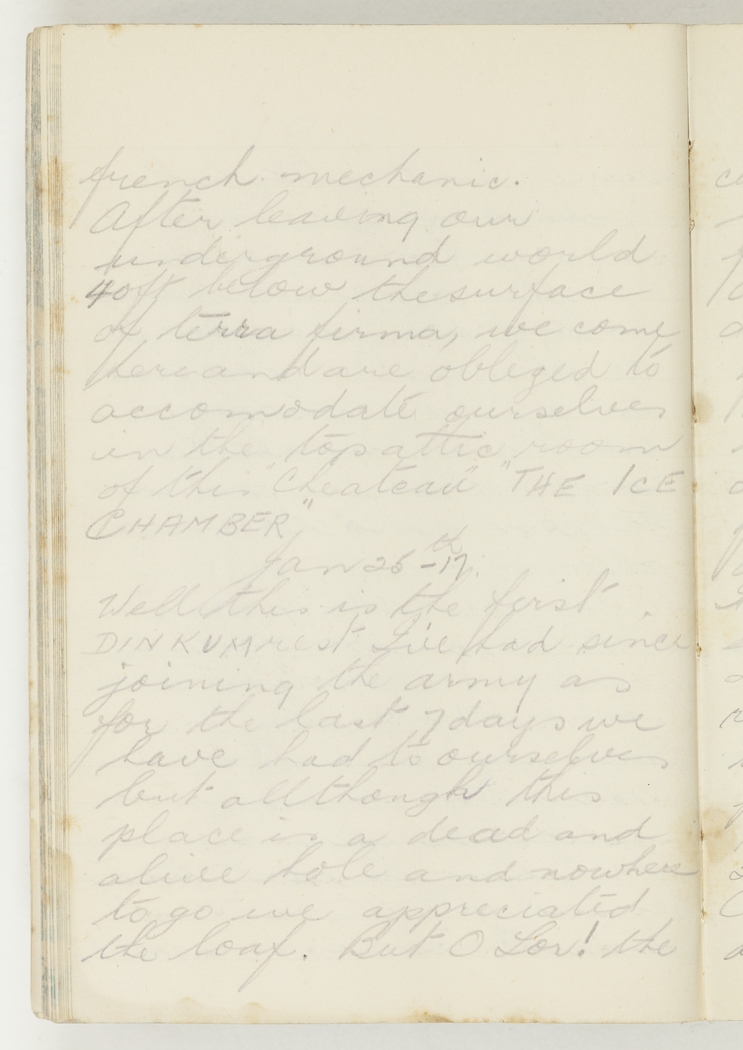 french mechanic.
After leaving our
underground world
40ft below the surface
of terra firma, we come
here and are obleged to
accomodate ourselves
in the top attic room
of this "Cheateau" "THE ICE
CHAMBER"
Jan 25th -17.
Well this is the first
DINKUM rest I've had since
joining the army as
for the last 7 days we
have had to ourselves
but allthough this
place is a dead and
alive hole and nowhere
to go we appreciated
the loaf. But O Lor! the